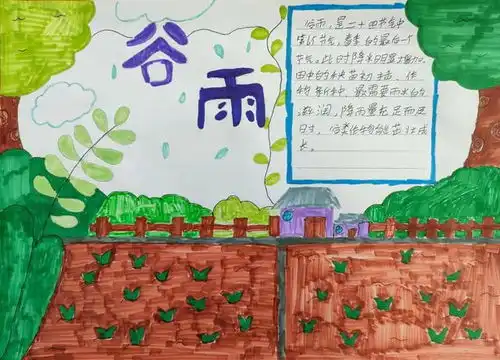 谷雨
谷雨,是二十四节气中
第6节气,春季的最后一个
节气。此时降水明显增加,
田中的秧苗初插、作
物新种,最需要雨水的
滋润,降雨量充足而及
时,谷类作物能茁壮成
长。